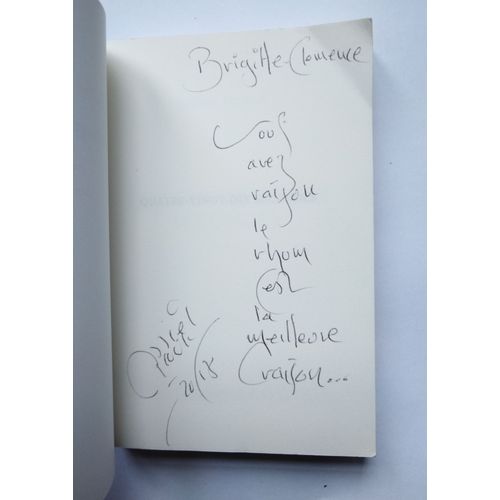 Brigitte-Clémence
Vous
avez
raison
le
rhum
est
la
meilleure
raison...
2018